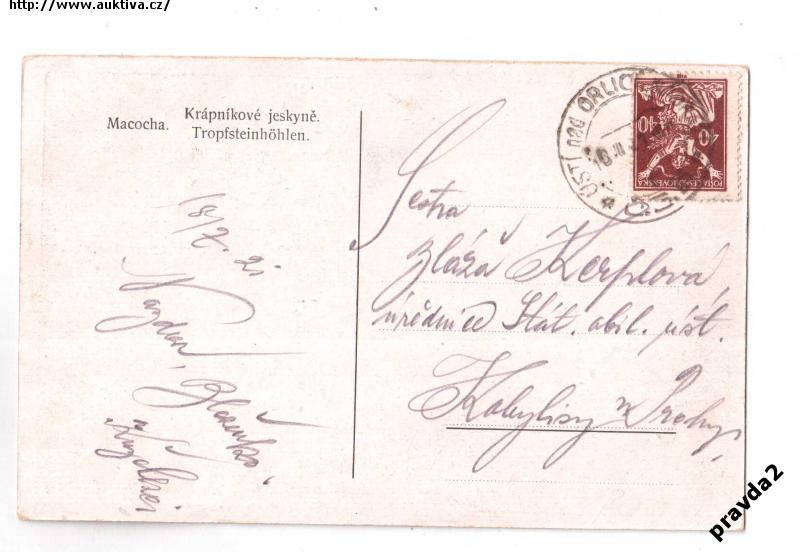 http://www.auktiva.cz/
Macocha. Krápníkové jeskyně.
Tropfsteinhöhlen.
ÚSTÍ nad ORLICÍ
40 40
POŠTA ČESKOSLOVENSKÁ
Sestra
Bláža Kerplová,
úřednice Stát. obil. úst.
Kobylisy u Prahy
18/7. 21
Nazdar,
pravda2